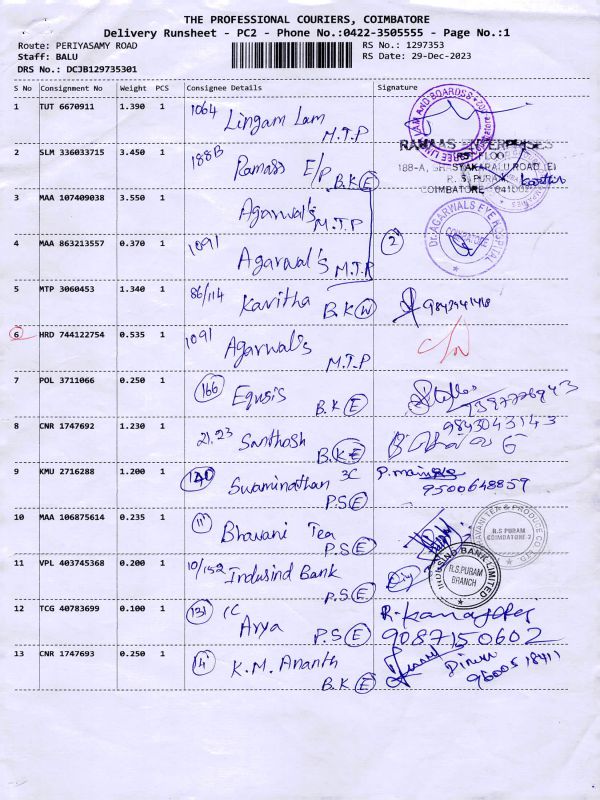 THE PROFESSIONAL COURIERS, COIMBATORE
Delivery Runsheet - PC2 - Phone No.:0422-3505555 - Page No.:1
Route: PERIYASAMY ROAD
RS No.: 1297353
Staff: BALU
RS Date: 29-Dec-2023
DRS No.: DCJB129735301
S No Consignment No Weight PCS Consignee Details Signature
1 TUT 6670911 1.390 1 1064 Lingam Lam M.T.P
LAM AND BOARDS
2 SLM 336033715 3.450 1 188B Ramass E/P B.K (E)
RAMAAS ENTERPRISES
FLOOR
R. S. PURAM
COIMBATORE - 641002
3 MAA 107409038 3.550 1 Agarwal's M.T.P
4 MAA 863213557 0.370 1 1091 Agarwal's M.T.P
2
Dr. AGARWALS EYE HOSPITAL
COIMBATORE
5 MTP 3060453 1.340 1 86/114 Kavitha B.K (W)
6 HRD 744122754 0.535 1 1091 Agarwal's M.T.P
7 POL 3711066 0.250 1 166 Equsis B.K (E)
8 CNR 1747692 1.230 1 21.23 Santhosh B.K (E)
9843043143
9 KMU 2716288 1.200 1 140 Swaminathan 3C P.S (E)
9500648859
10 MAA 106875614 0.235 1 11 Bhavani Tea P.S (E)
BHAVANI TEA & PRODUCE CO
R.S PURAM
COIMBATORE 2
11 VPL 403745368 0.200 1 10/152 Indusind Bank P.S (E)
INDUSIND BANK LIMITED
R.S.PURAM
BRANCH
12 TCG 40783699 0.100 1 131 1C Arya P.S (E)
9087150602
13 CNR 1747693 0.250 1 141 K.M. Ananth B.K (E)